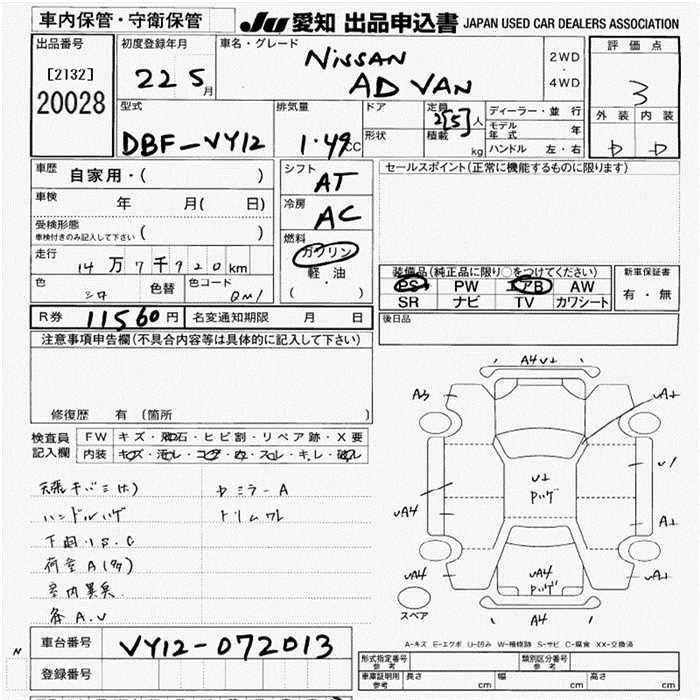 車内保管・守衛保管
JU 愛知 出品申込書 JAPAN USED CAR DEALERS ASSOCIATION
出品番号
[2132]
20028
初度登録年月
22 5月
車名・グレード
NISSAN
AD VAN
2WD
・
4WD
評価点
3
外装 内装
型式
DBF-VY12
排気量
1.49cc
ドア
形状
定員
2[5]人
積載
kg
ディーラー・並行
モデル年式 年
ハンドル 左・右
車歴
自家用・( )
車検
年 月( 日)
受検形態
車検付きのみ記入して下さい ( )
走行
14万7千920km
色
シロ
色替
色コード
QM1
シフト
AT
冷房
AC
燃料
ガソリン
軽・油
( )
セールスポイント(正常に機能するものに限ります)
装備品(純正品に限り○をつけてください)
PS PW エアB AW
SR ナビ TV カワシート
新車保証書
有・無
R券 11560円
名変通知期限 月 日
後日品
注意事項申告欄(不具合内容等は具体的に記入して下さい)
修復歴 有 (箇所 )
検査員
記入欄
FW キズ・飛石・ヒビ割・リペア跡・X要
内装 キズ・汚レ・コゲ・穴・スレ・キレ・破レ
ハンドルハゲ
下回りS.C
荷室A(多)
室内異臭
各A.U
ヤミラーA
トリムワレ
A4U+
A3
UA+
U1
U+
Pハゲ
UA4
A+
UA4
UA4
Pハゲ
UA+
A4
スペア
A-キズ E-エクボ U-凹み W-補修跡 S-サビ C-腐食 XX-交換済
車台番号
VY12-072013
N
登録番号
形式指定番号
参考
類別区分番号
参考
車庫証明用
参考
長さ cm 幅 cm 高さ cm